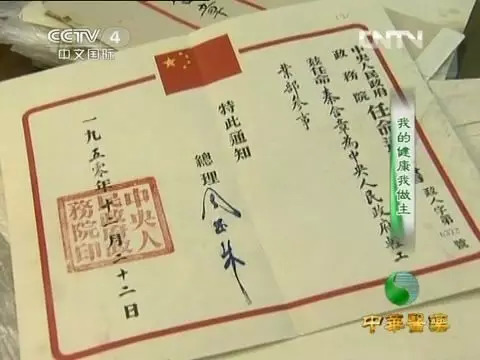 CCTV 4
中文国际
CNTN
我的健康我做主
中華醫藥
政人字第
號
中央人民政府
政務院
任命通
書
茲任命秦含章為中央人民政府輕工
業部參事
特此通知
總理
周恩來
一九五零年十二月二十二日
中央人
民政府政
務院印